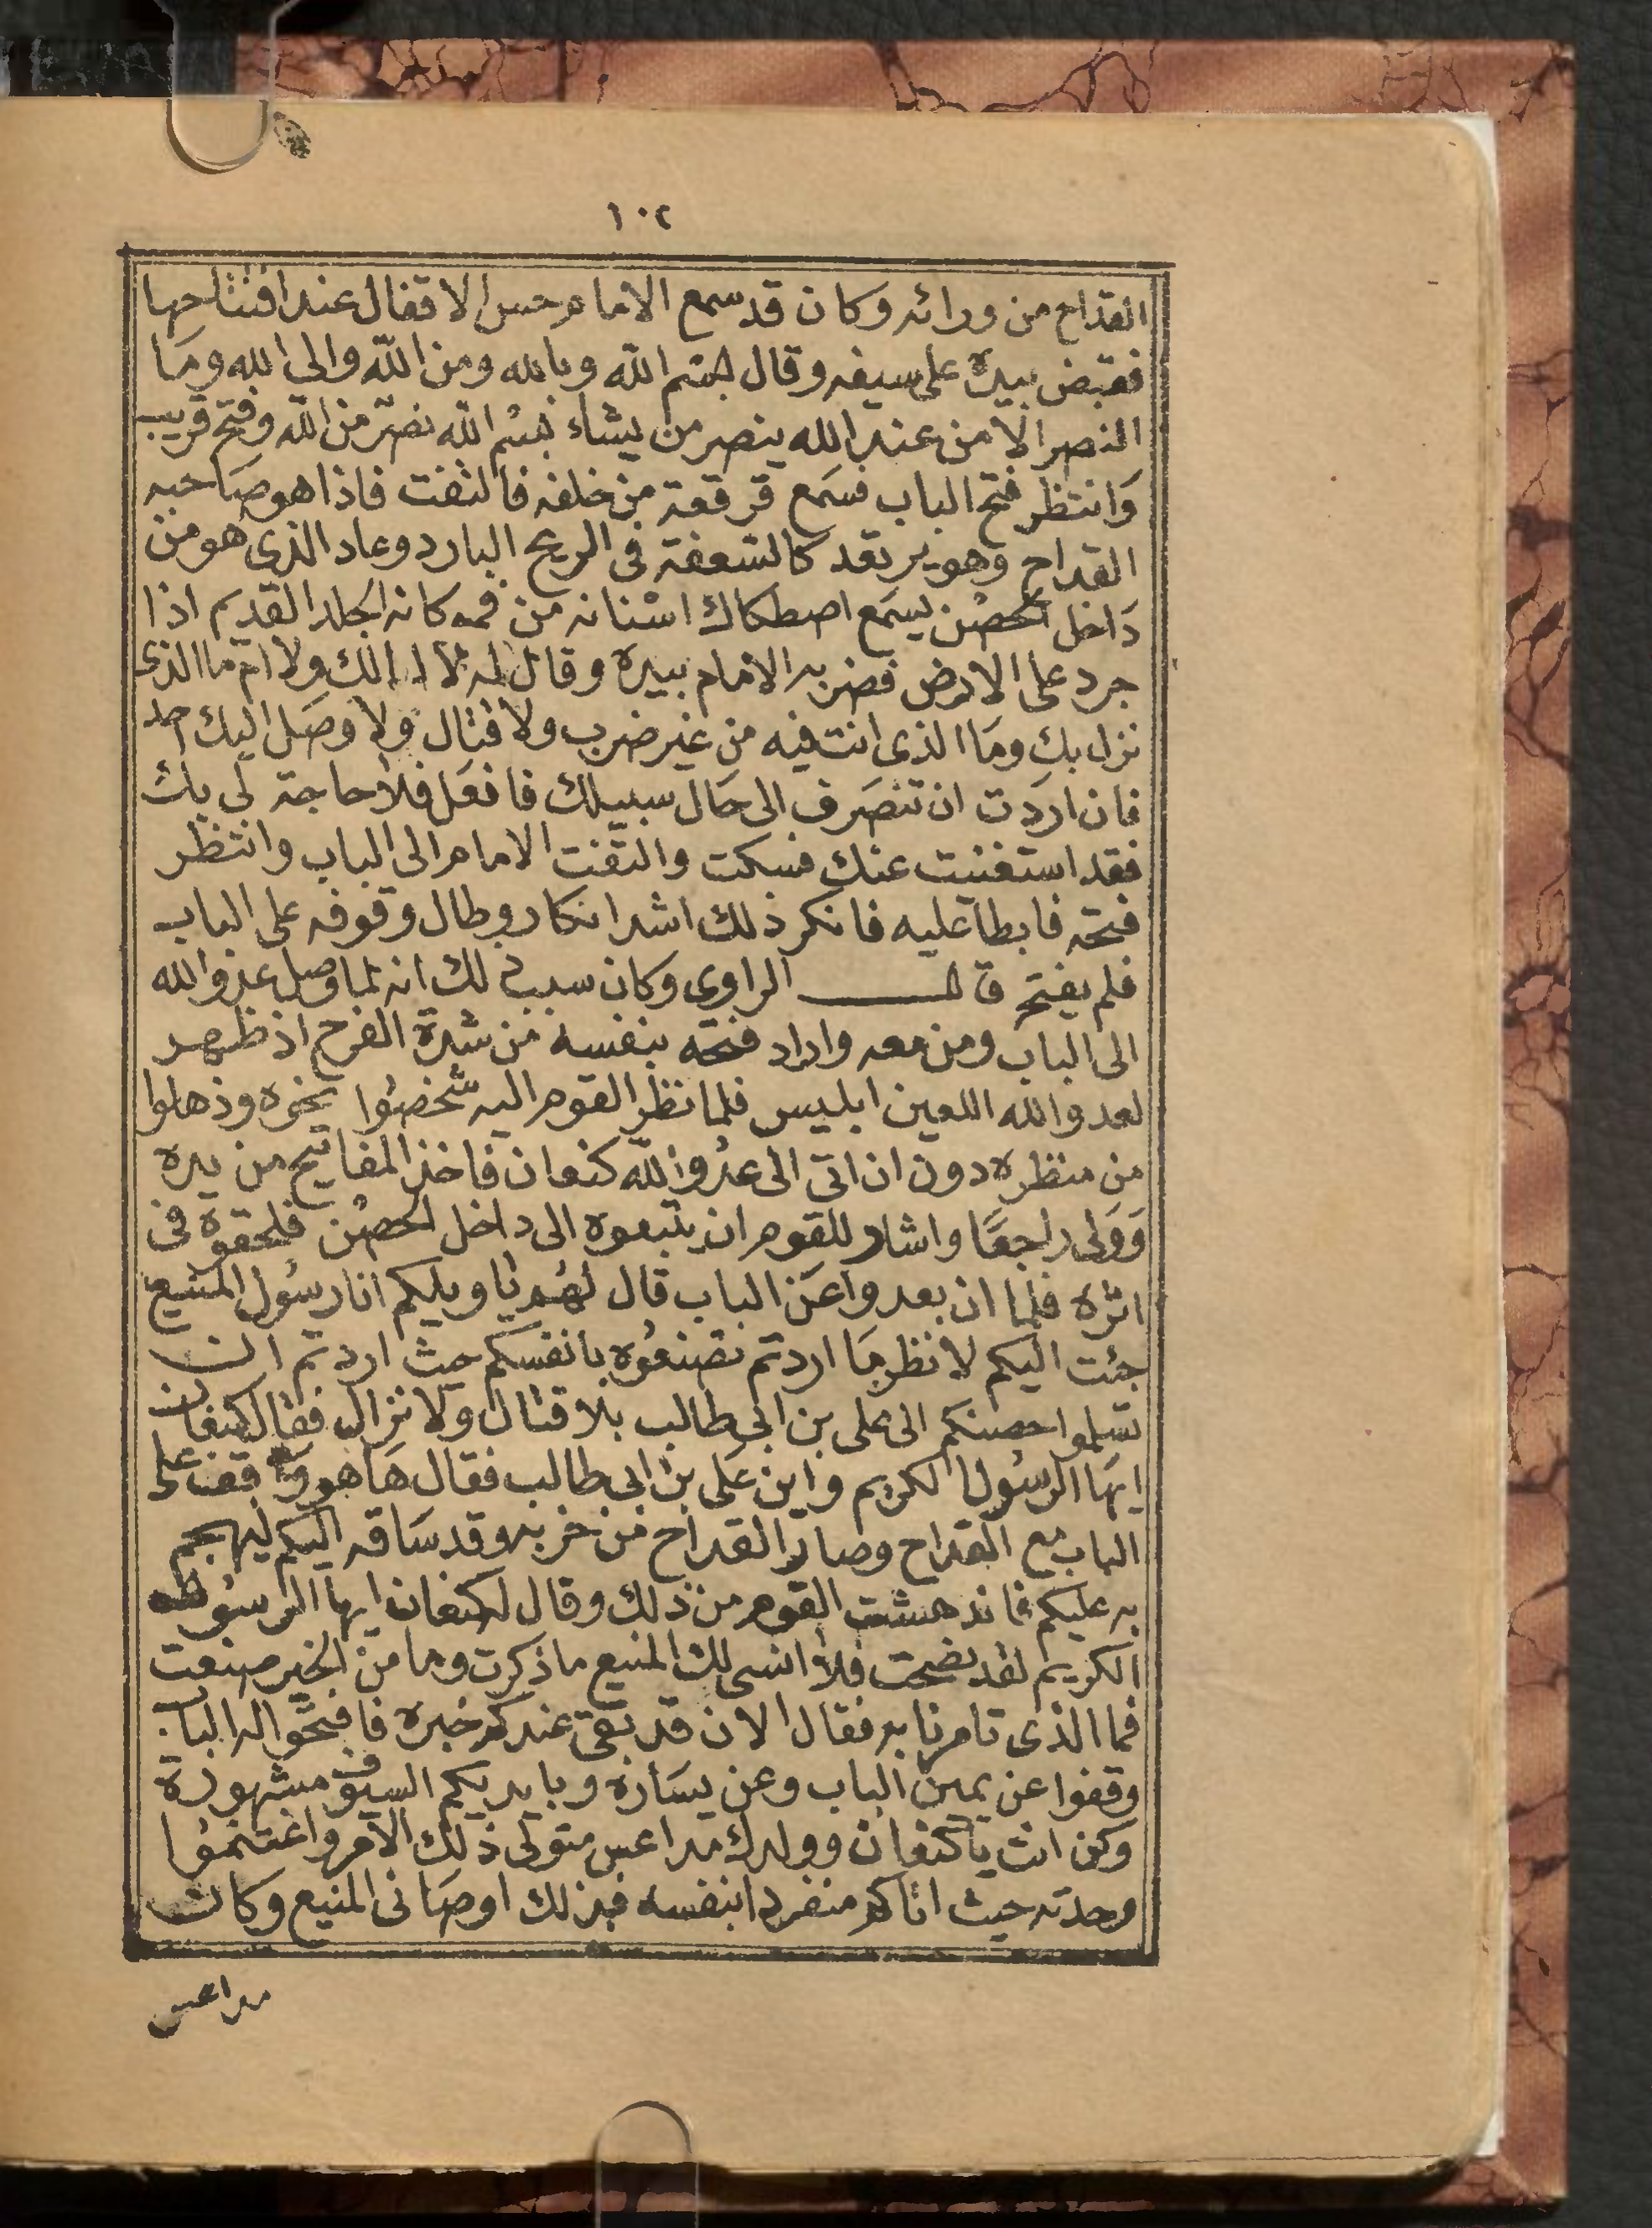 ١٠٢
القداح من ورائه وكان قد سمع الامام حس الاقفال عند افتتاحها
فقبض بيده على سيفه وقال بسم الله وبالله ومن الله والى الله وما
النصر الا من عند الله ينصر من يشاء بسم الله نصر من الله وفتح قريب
وانتظر فتح الباب فسمع قرقعة من خلفه فالتفت فاذا هو صاحبه
القداح وهو يرتعد كالسعفة فى الريح البارد وعاد الذى هو من
داخل الحصن يسمع اصطكاك اسنانه من فمه كانه الجلد القديم اذا
جرد على الارض فضربه الامام بيده وقال له لا اب لك ولا ام ما الذى
نزل بك وما الذى انت فيه من غير ضرب ولا قتال ولا وصل اليك احد
فان اردت ان تنصرف الى حال سبيلك فافعل فلا حاجة لى بك
فقد استغنيت عنك فسكت والتفت الامام الى الباب وانتظر
فتحه فابطا عليه فانكر ذلك اشد انكار وطال وقوفه على الباب
فلم يفتح قال الراوى وكان سبب ذلك انه لما وصل عدو الله
الى الباب ومن معه واراد فتحه بنفسه من شدة الفرح اذ ظهر
لعدو الله اللعين ابليس فلما نظر القوم اليه شخصوا نحوه وذهلوا
من منظره دون ان اتى الى عدو الله كنعان فاخذ المفاتيح من يده
وولى راجعا واشار للقوم ان يتبعوه الى داخل الحصن فلحقوه فى
اثره فلما ان بعدوا عن الباب قال لهم يا ويلكم انا رسول المنيع
جئت اليكم لانظر ما اردتم تصنعوه بانفسكم حيث اردتم ان
تسلموا حصنكم الى على بن ابى طالب بلا قتال ولا نزال فقال كنعان
ايها الرسول الكريم واين على بن ابى طالب فقال ها هو واقف على
الباب مع القداح وصار القداح من حزبه وقد ساقه اليكم ليهجم
به عليكم فاندهشت القوم من ذلك وقال كنعان ايها الرسول
الكريم لقد نصحت فلا انسى لك المنيع ما ذكرت وما من الخير صنعت
فما الذى تامرنا به فقال الان قد بقى عندكم خبره فافتحوا له الباب
وقفوا عن يمين الباب وعن يساره وبايديكم السيوف مشهورة
وكن انت يا كنعان وولدك مداعس متولى ذلك الامر واغتنموا
وحدته حيث اتاكم منفردا بنفسه فبذلك اوصانى المنيع وكان
مداعس